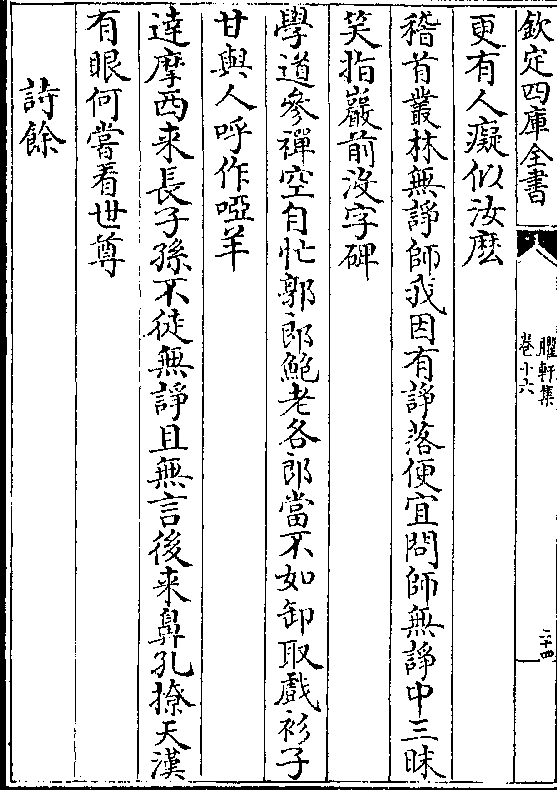 欽定四庫全書
臞軒集
卷十六
二十四
更有人癡似汝麽
稽首叢林無諍師我因有諍落便宜問師無諍中三昧
笑指巖前沒字碑
學道參禪空自忙郭郎鮑老各郎當不如卸取戲衫子
甘與人呼作啞羊
達摩西来長子孫不徒無諍且無言後来鼻孔撩天漢
有眼何嘗看世尊
詩餘